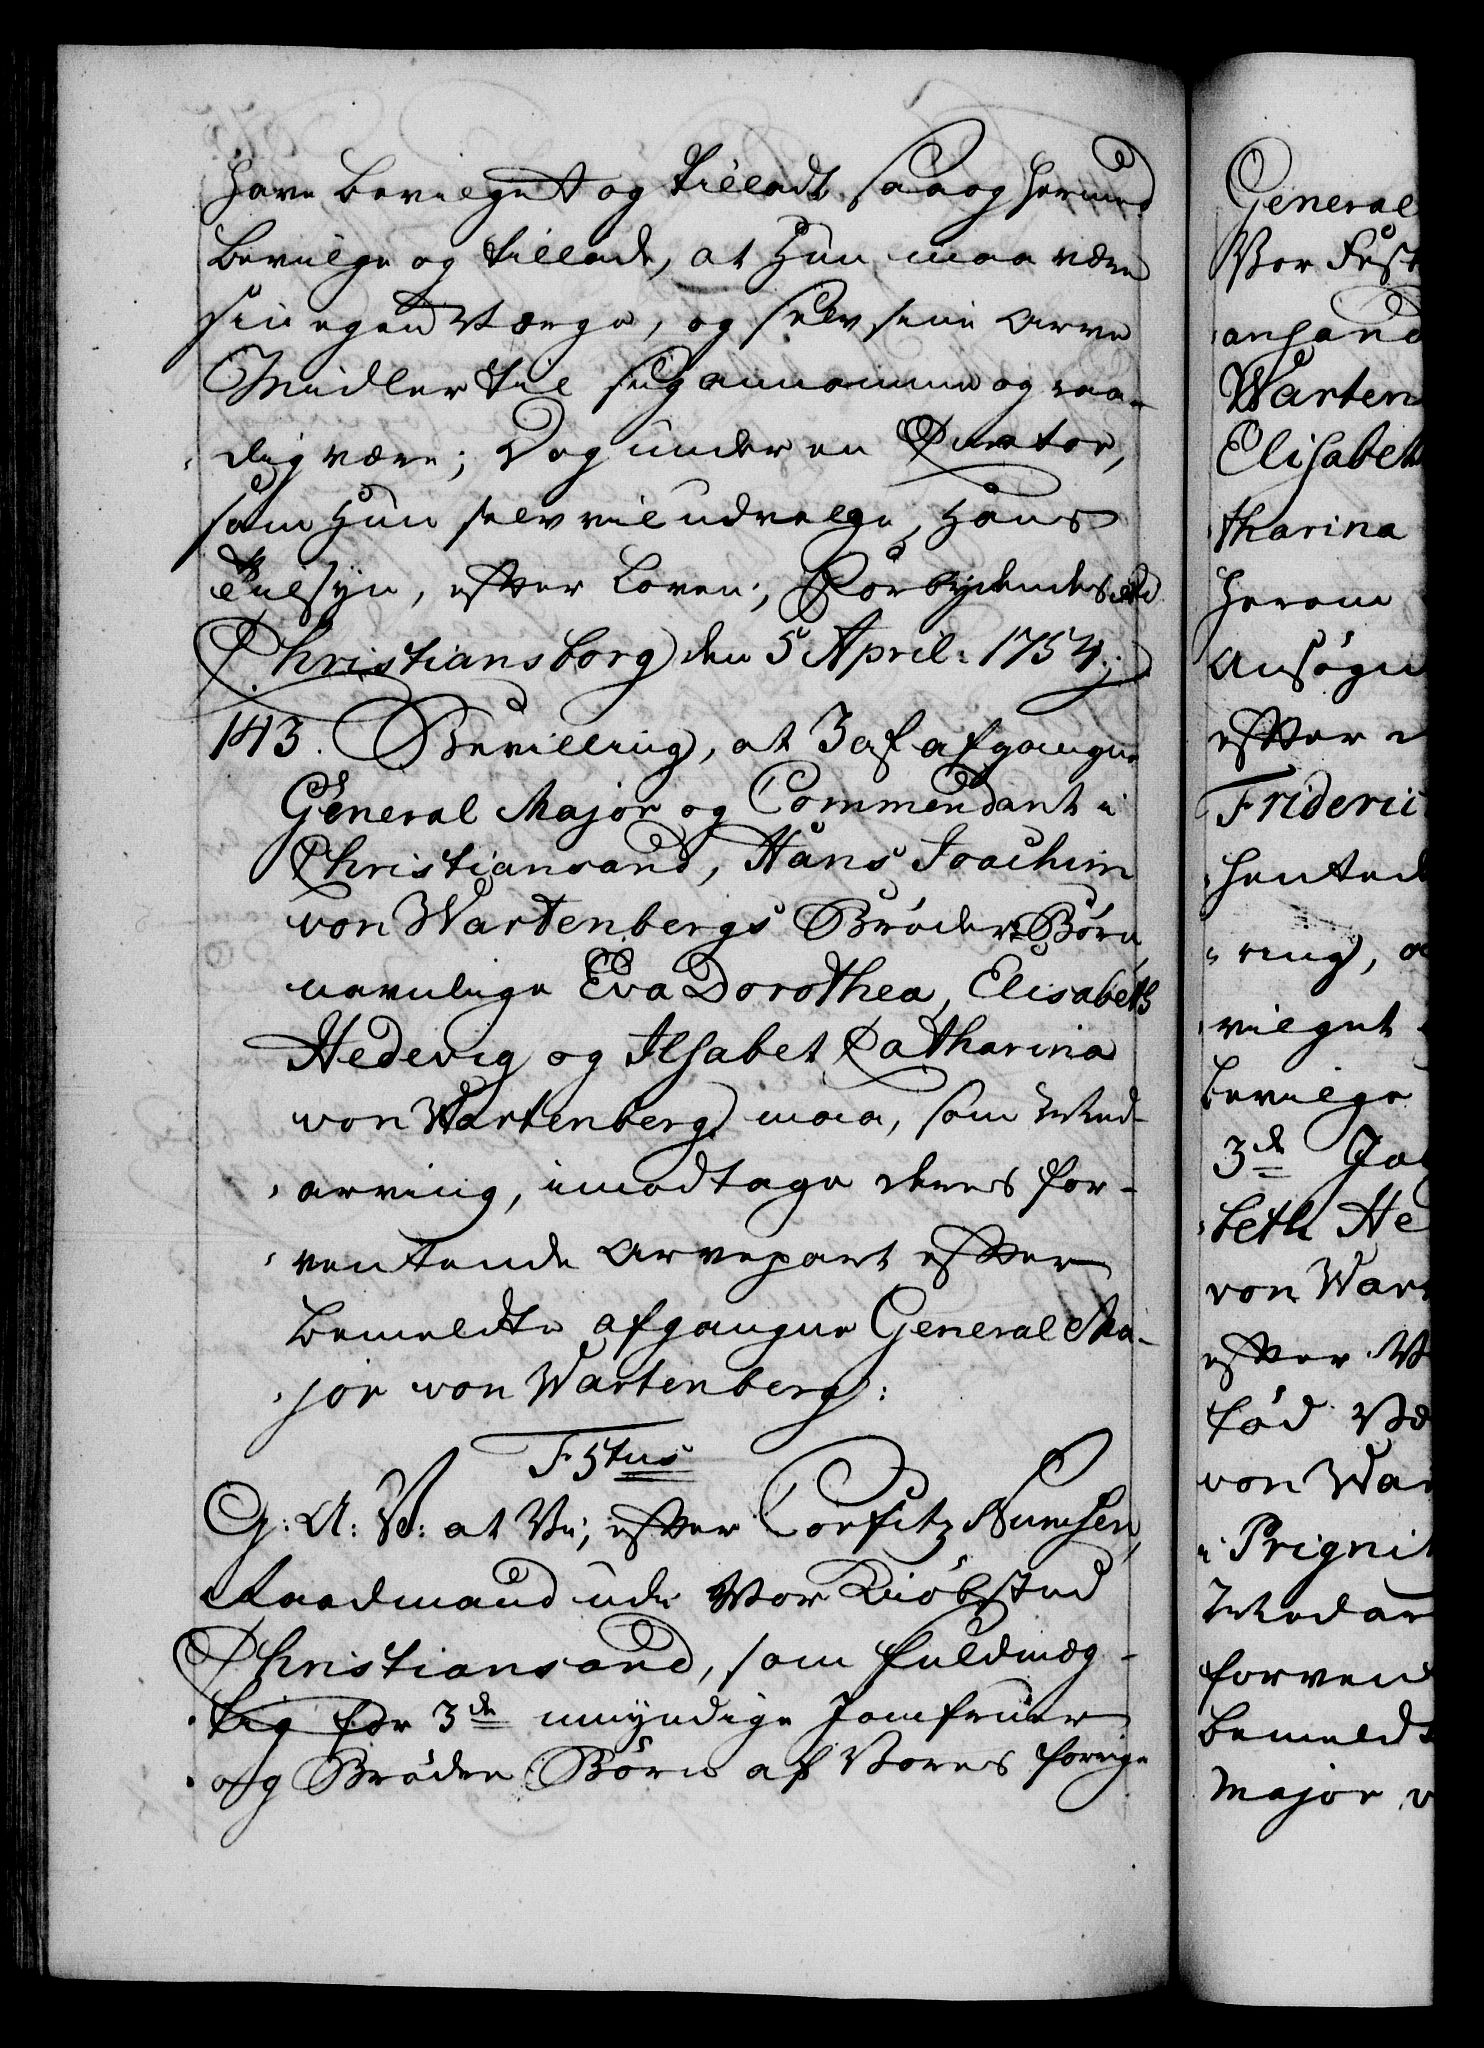 have bevilget og tilladt saa og hermed
bevilge og tillade, at Hun maa være
sin egen Værge, og selv sine Arve
Midler til sig annamme og raa-
dig være; Dog under en Curator,
som Hun selv vil udvelge, Hans
Tilsyn, efter Loven; Forbydendes &c
Christiansborg den 5 April: 1754.
143. Bevilling, at 3 af afgangne
General Major og Commendant i
Christiansand, Hans Joachim
von Wartenbergs Broder Børn,
navnlige Eva Dorothea, Elisabeth
Hedevig og Ilsabet Catharina
von Wartenberg maa, som Med-
arving, imodtage deres for-
ventende Arvepart efter
bemeldte afgangne General Ma-
jor von Wartenberg:
F 5tus
G: A: V: at Vi, efter Corfitz Numsen,
Raadmand udi Vor Kiöbsted
Christiansand, som fuldmæg-
tig for 3de umyndige Jomfruer
og Broder Börn af Vores forrige
General
Vor Fest
ansand
Warten
Elisabeth
tharina
herom
Ansøgn
efter
Frideric
hented
ring,
vilget
bevilge
3de
beth He
von Wart
efter
fød
von War
i Prignit
Medar
forven
bemeldt
Major v